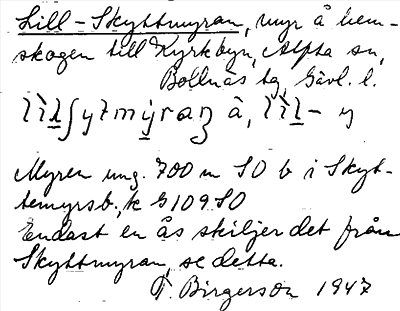 Lill-Skyttmyran, myr å hem-
skogen till Kyrkbyn, Alfta sn,
Bollnäs tg, Gävl. l.
Myren ung. 700 m SO b i Skyt-
temyrsb., k G109 SO
Endast en ås skiljer det från
Skyttmyran, se detta.
T. Birgerson 1947